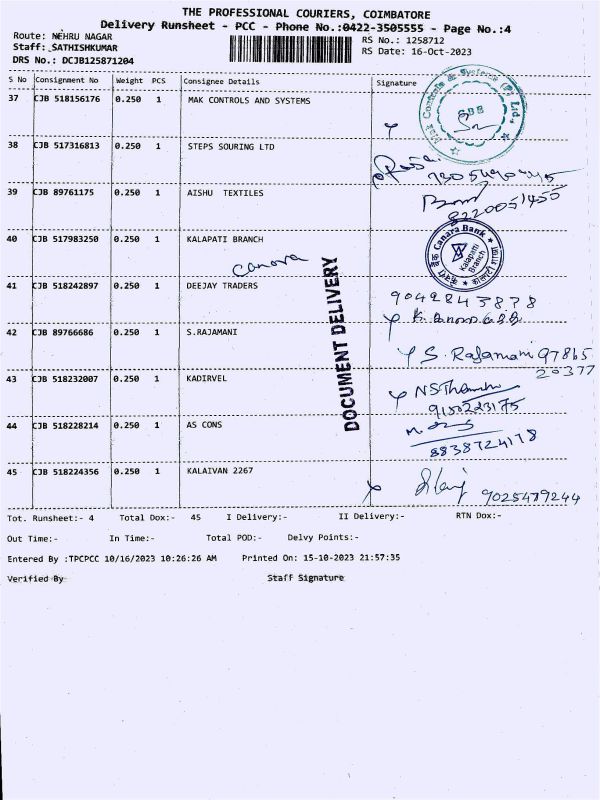 THE PROFESSIONAL COURIERS, COIMBATORE
Delivery Runsheet - PCC - Phone No.:0422-3505555 - Page No.:4
Route: NEHRU NAGAR
RS No.: 1258712
Staff: SATHISHKUMAR
RS Date: 16-Oct-2023
DRS No.: DCJB125871204
S No Consignment No Weight PCS Consignee Details Signature
37 CJB 518156176 0.250 1 MAK CONTROLS AND SYSTEMS
Mak Controls & Systems (P) Ltd.,
38 CJB 517316813 0.250 1 STEPS SOURING LTD
39 CJB 89761175 0.250 1 AISHU TEXTILES
8220051455
40 CJB 517983250 0.250 1 KALAPATI BRANCH
Canara Bank
Kalapati Branch
canara
41 CJB 518242897 0.250 1 DEEJAY TRADERS
9042843878
DOCUMENT DELIVERY
42 CJB 89766686 0.250 1 S.RAJAMANI
S. Rajamani 97865
20377
43 CJB 518232007 0.250 1 KADIRVEL
44 CJB 518228214 0.250 1 AS CONS
8838724178
45 CJB 518224356 0.250 1 KALAIVAN 2267
9025479244
Tot. Runsheet:- 4 Total Dox:- 45 I Delivery:- II Delivery:- RTN Dox:-
Out Time:- In Time:- Total POD:- Delvy Points:-
Entered By :TPCPCC 10/16/2023 10:26:26 AM Printed On: 15-10-2023 21:57:35
Verified By Staff Signature